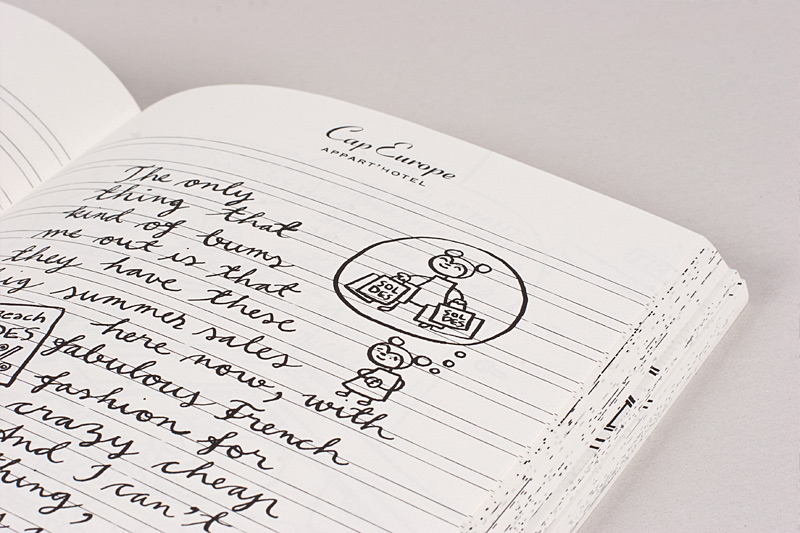 Cap Europe
APPART'HOTEL
The only
thing that
kind of bums
me out is that
they have these
big summer sales
here now, with
fabulous French
fashion for
crazy cheap
And I can't
thing,
SOL
DES
SOL
DES
each
DES